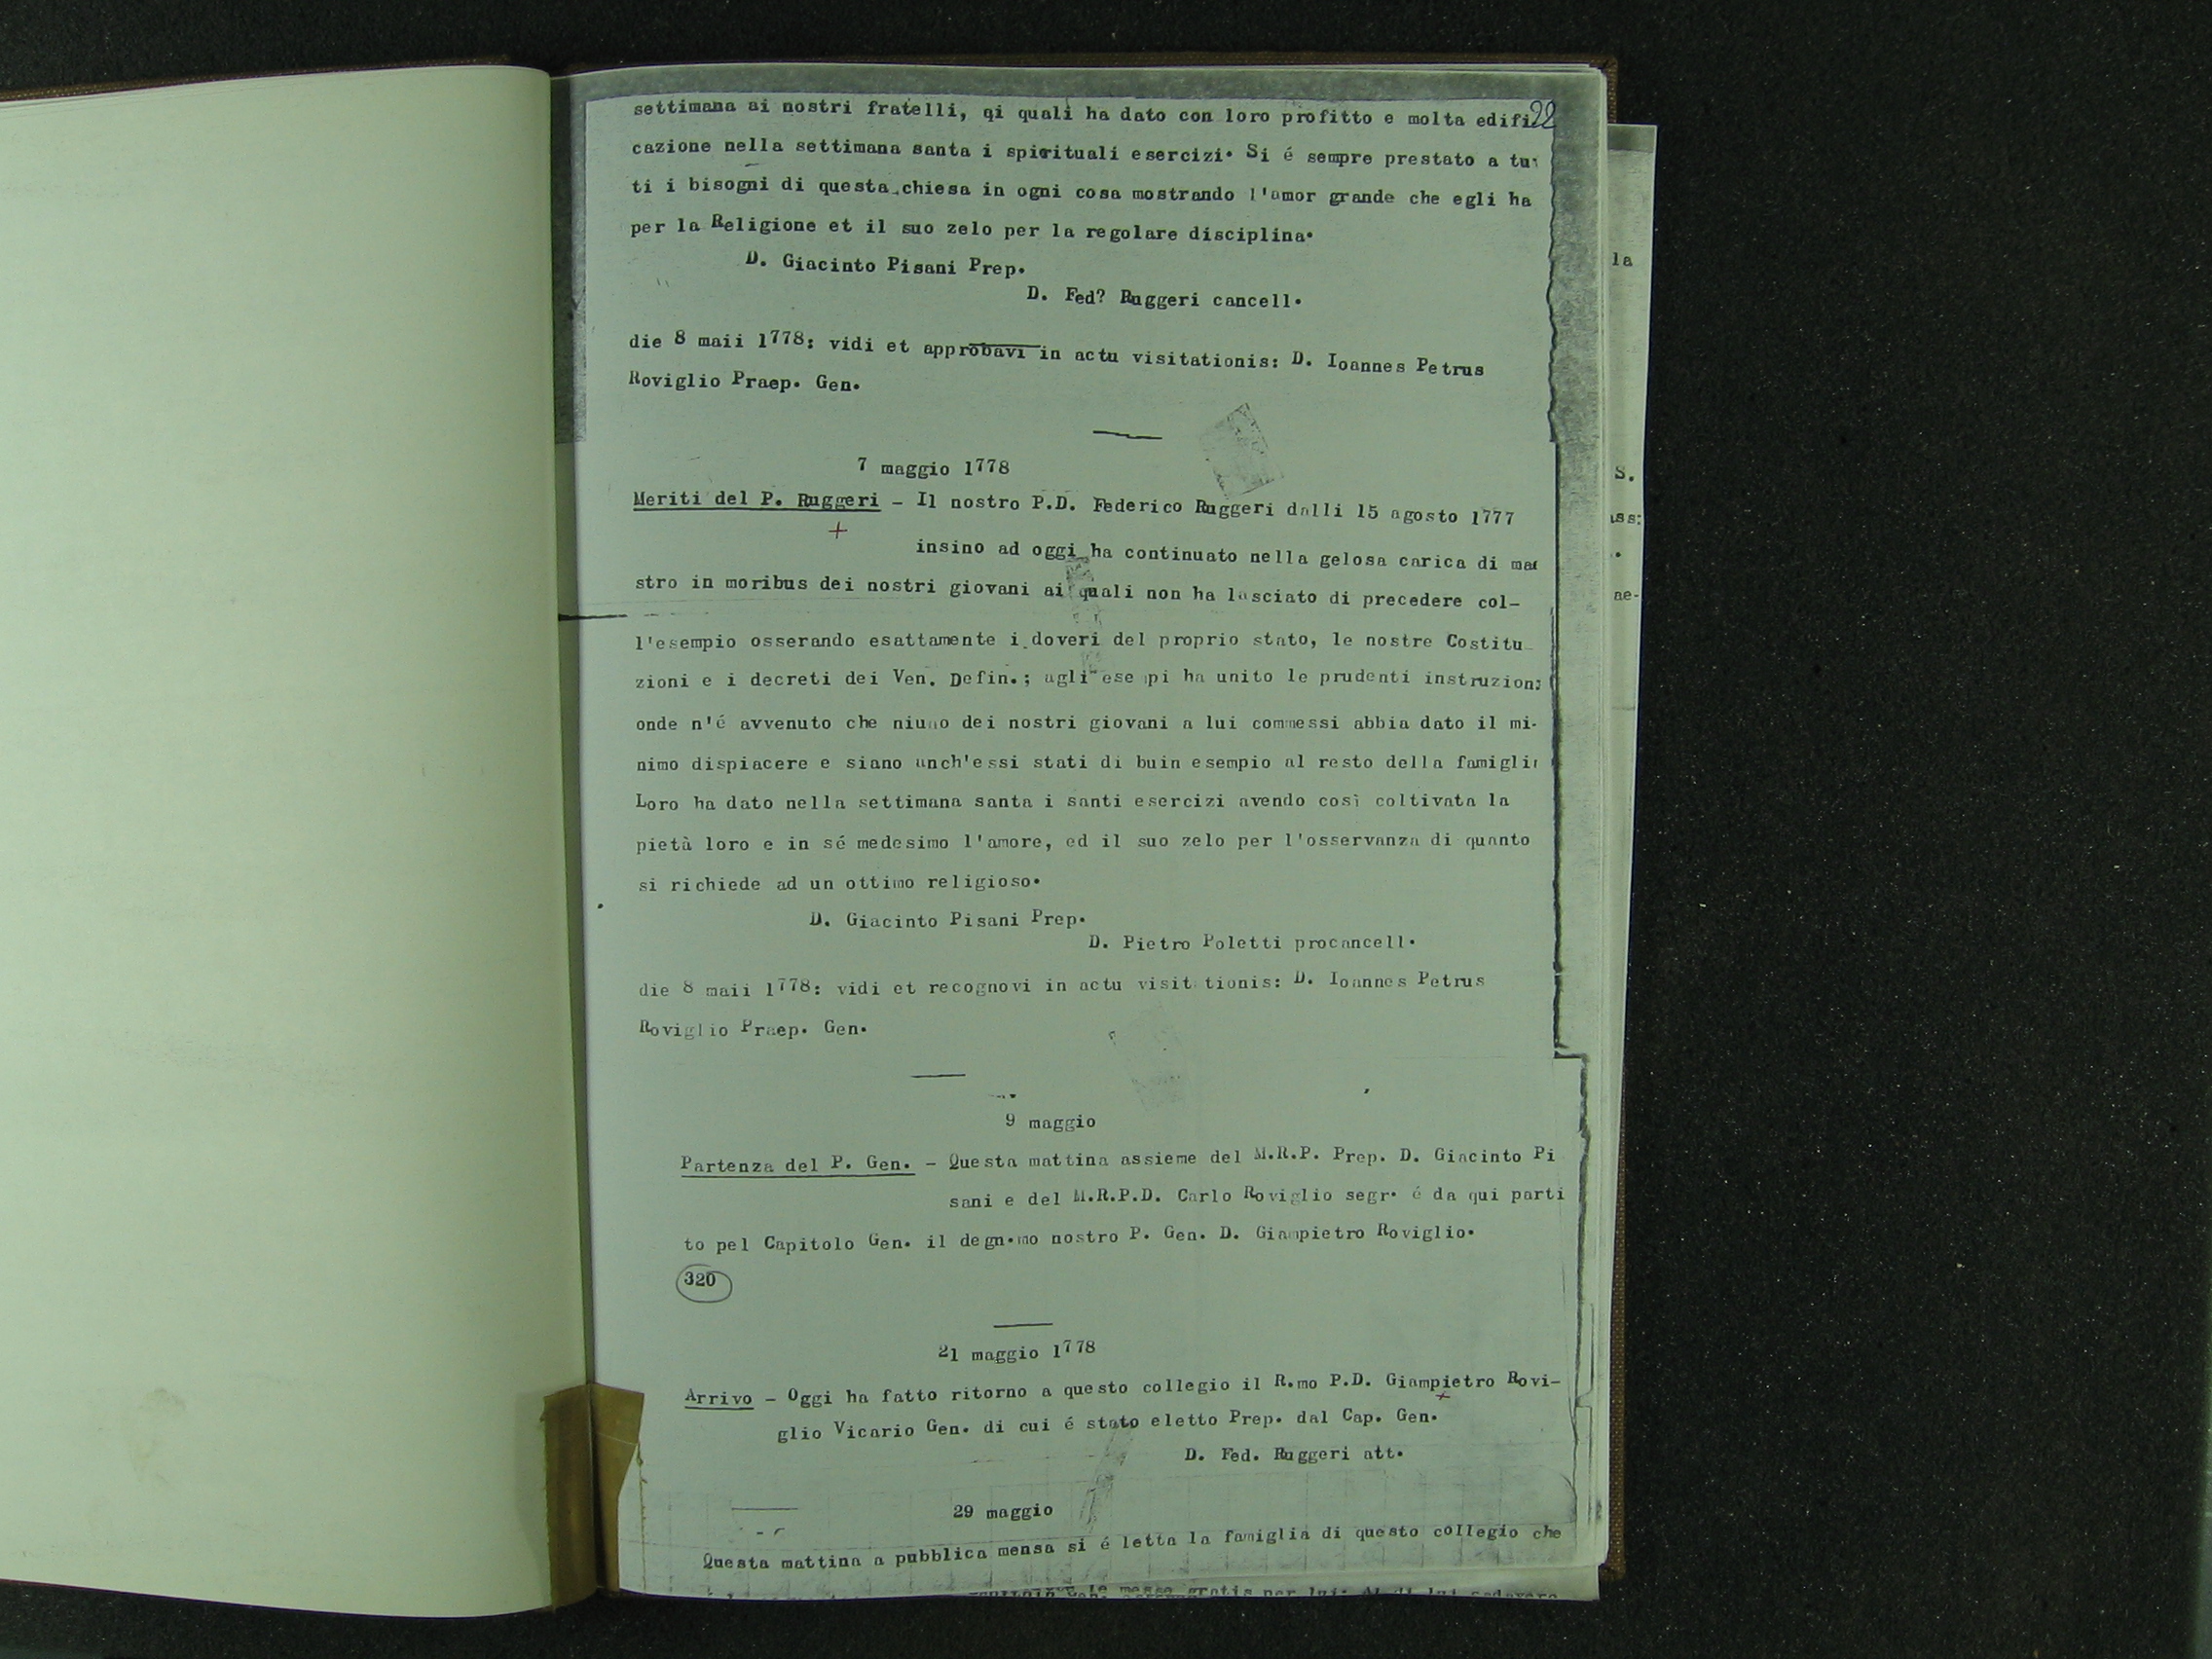 settimana ai nostri fratelli, qi quali ha dato con loro profitto e molta edifi
22
cazione nella settimana santa i spirituali esercizi. Si é sempre prestato a tut
ti i bisogni di questa chiesa in ogni cosa mostrando l'amor grande che egli ha
per la Religione et il suo zelo per la regolare disciplina.
D. Giacinto Pisani Prep.
D. Fed? Ruggeri cancell.
die 8 maii 1778: vidi et approbavi in actu visitationis: D. Ioannes Petrus
Roviglio Praep. Gen.
7 maggio 1778
Meriti del P. Ruggeri - Il nostro P.D. Federico Ruggeri dalli 15 agosto 1777
insino ad oggi ha continuato nella gelosa carica di mae
stro in moribus dei nostri giovani ai quali non ha lasciato di precedere col-
l'esempio osserando esattamente i doveri del proprio stato, le nostre Costitu
zioni e i decreti dei Ven. Defin.; agli ese pi ha unito le prudenti instruzioni
onde n'é avvenuto che niuno dei nostri giovani a lui commessi abbia dato il mi-
nimo dispiacere e siano anch'essi stati di buin esempio al resto della famiglia
Loro ha dato nella settimana santa i santi esercizi avendo così coltivata la
pietà loro e in sé medesimo l'amore, ed il suo zelo per l'osservanza di quanto
si richiede ad un ottimo religioso.
D. Giacinto Pisani Prep.
D. Pietro Poletti procancell.
die 8 maii 1778: vidi et recognovi in actu visitationis: D. Ioannes Petrus
Roviglio Praep. Gen.
9 maggio
Partenza del P. Gen. - Questa mattina assieme del M.R.P. Prep. D. Giacinto Pi
sani e del M.R.P.D. Carlo Roviglio segr. é da qui parti
to pel Capitolo Gen. il degn.mo nostro P. Gen. D. Giampietro Roviglio.
320
21 maggio 1778
Arrivo - Oggi ha fatto ritorno a questo collegio il R.mo P.D. Giampietro Rovi-
glio Vicario Gen. di cui é stato eletto Prep. dal Cap. Gen.
D. Fed. Ruggeri att.
29 maggio
Questa mattina a pubblica mensa si é letta la famiglia di questo collegio che
la
S.
ss:
ae-